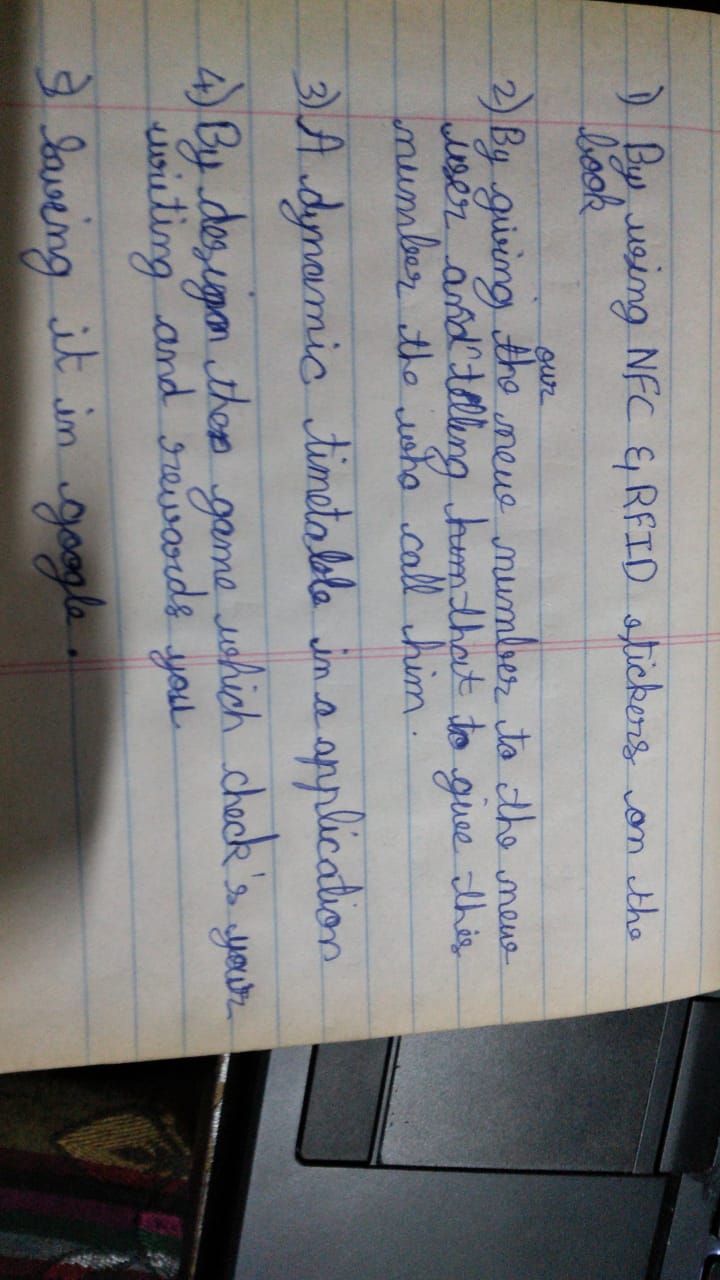 1) By using NFC & RFID stickers on the
book
our
2) By giving the new number to the new
user and telling him that to give this
number the who call him.
3) A dynamic timetable in a application
4) By design the game which check's your
writing and rewards you
5) Saving it in google.